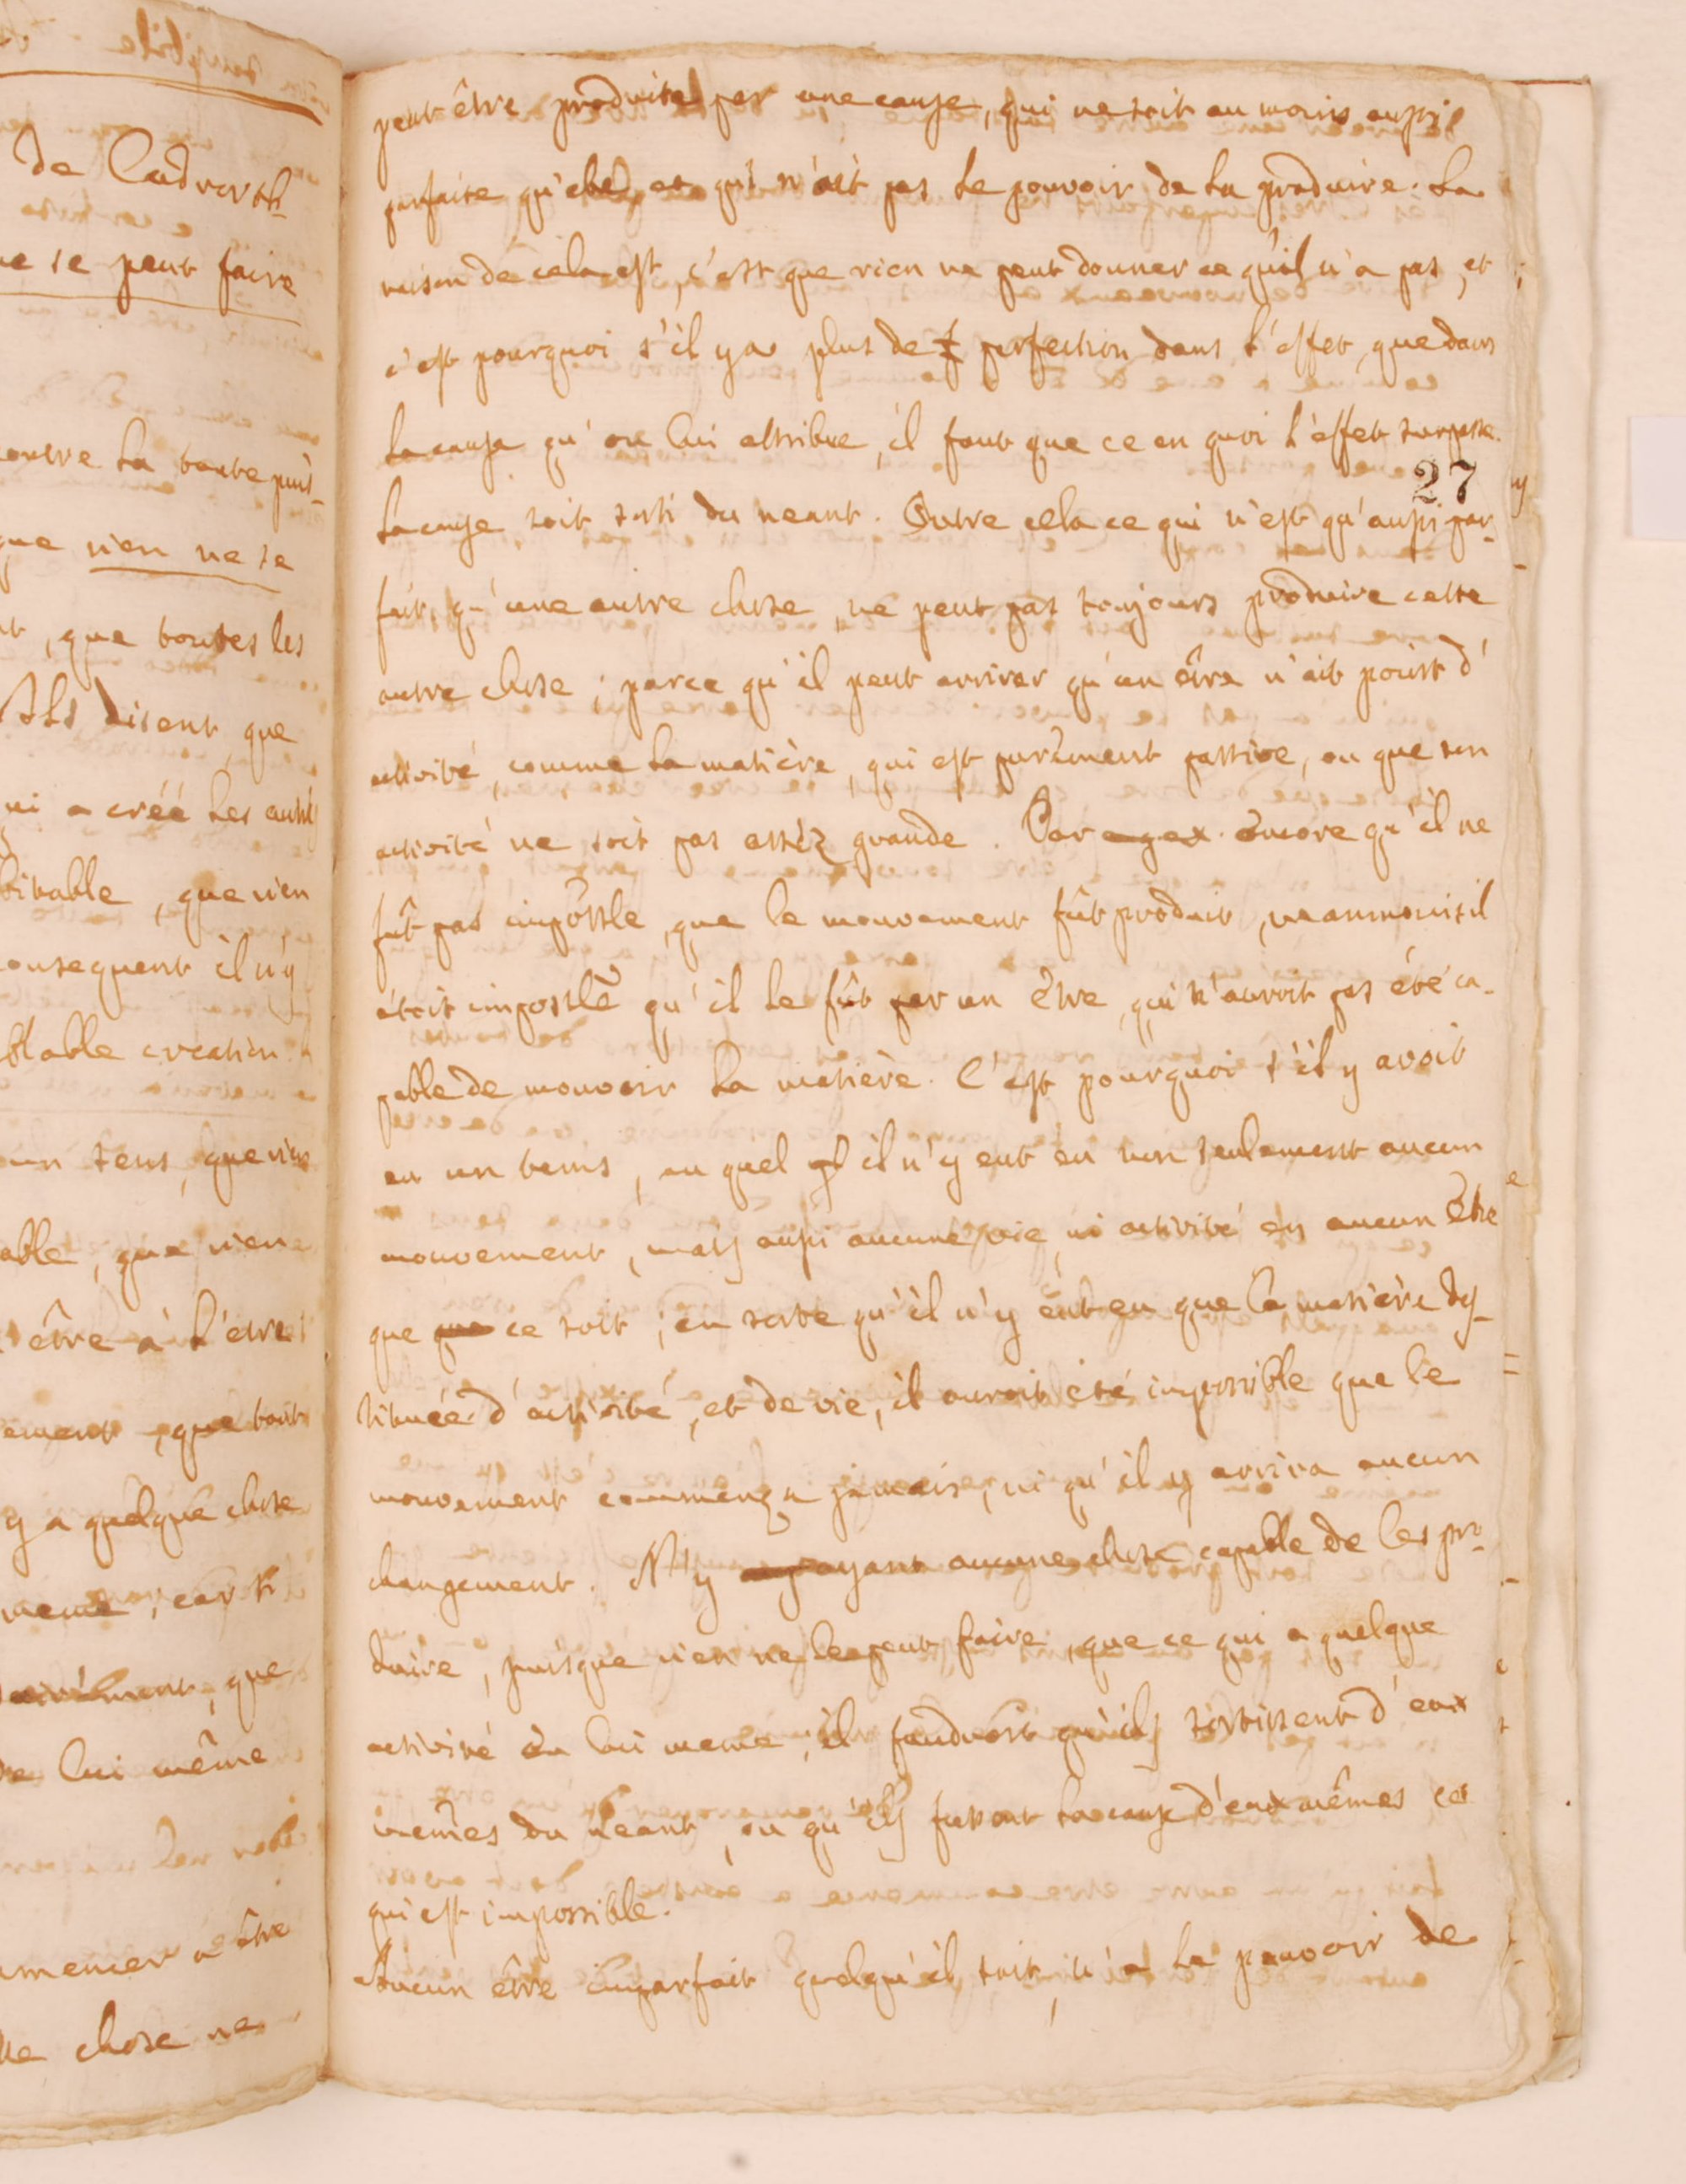 de Cudworth
ne se peut faire
contre la toute puis-
que rien ne se
, que toutes les
Ils disent que
qui a créé les autres
bitable, que rien
consequent il n'y
blable creation
un sens, que rien
able, que rien
être à l'être
ement, que tout
y a quelque chose
meme, car si
que
de lui même
mencer à être
chose ne
peut être produite par une cause, qui ne soit au moins aussi
parfaite qu'elle, et qui n'ait pas le pouvoir de la produire. La
raison de cela est, c'est que rien ne peut donner ce qu'il n'a pas, et
c'est pourquoi s'il y a plus de perfection dans l'effet, que dans
la cause qu'on lui attribue, il faut que ce en quoi l'effet surpasse
27
la cause soit sorti du neant. Outre cela ce qui n'est qu'aussi par-
fait, qu'une autre chose, ne peut pas toujours produire cette
autre chose; parce qu'il peut arriver qu'un être n'ait point d'
activité, comme la matière, qui est purement passive, ou que son
activité ne soit pas assèz grande. Car encore qu'il ne
fût pas impossle, que le mouvement fût produit, neanmoins il
étoit impossle qu'il le fût par un Être, qui n'auroit pas été ca-
pable de mouvoir la matière. C'est pourquoi s'il y avoit
eu un tems, au quel il n'y eut eu non seulement aucun
mouvement, mais aussi aucune vie, ni activité en aucun Être
que ce soit; en sorte qu'il n'y eut eu que la matière des-
tituée d'activité, et de vie, il auroit été impossible que le
mouvement commença jamais, ni qu'il y arriva aucun
changement. N'y ayant aucune chose capable de les pro-
duire, puisque rien ne les peut faire, que ce qui a quelque
activité en lui meme, il faudroit qu'ils sortissent d'eux
mêmes du neant, ou qu'ils fussent la cause d'eux mêmes ce
qui est impossible.
Aucun être imparfait quelqu'il soit, n'a le pouvoir de